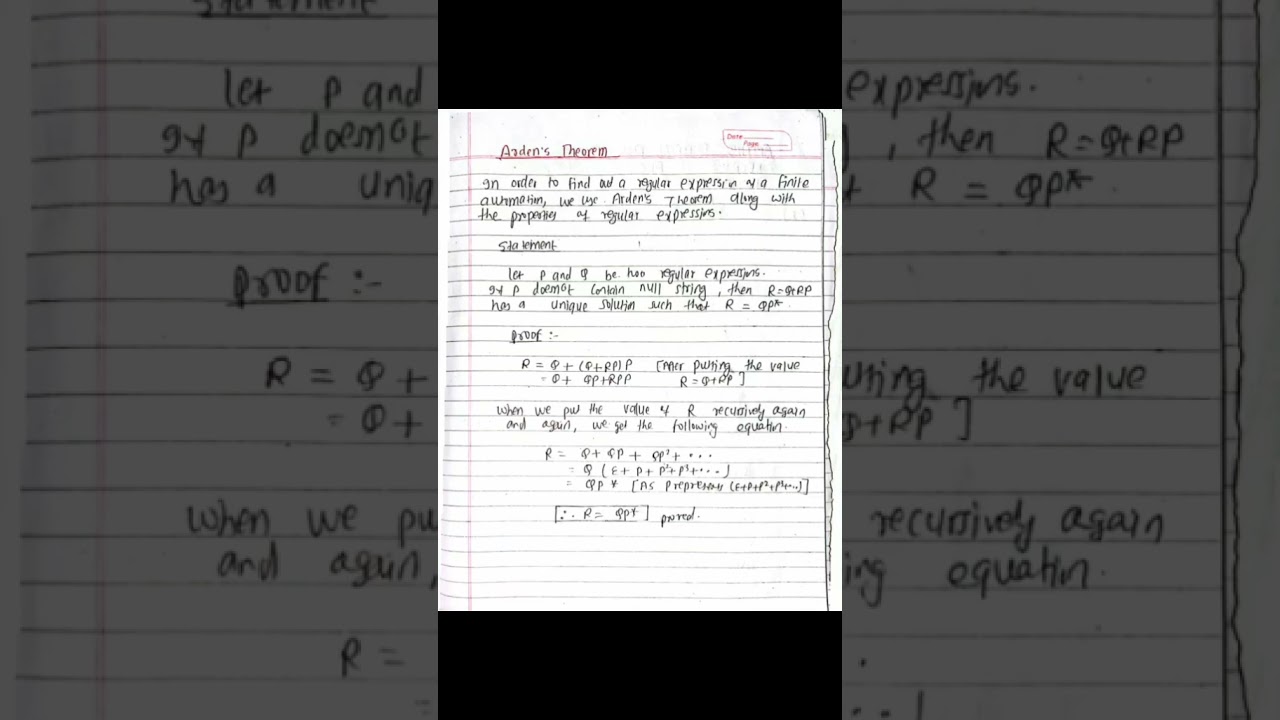 Date
Page
Arden's Theorem
In order to find out a regular expression of a finite
automation, we use Arden's Theorem along with
the properties of regular expressions.
Statement
let P and Q be two regular expressions.
If P doesnot contain null string, then R=Q+RP
has a unique solution such that R = QP*.
proof :-
R = Q + (Q+RP)P [After putting the value
= Q + QP+RPP R=Q+RP]
When we put the value of R recursively again
and again, we get the following equation.
R = Q + QP + QP² + ...
= Q (ε + P + P²+P³+...)
= QP* [As P represents (ε+P+P²+P³+...)]
[∴ R = QP*] proved.